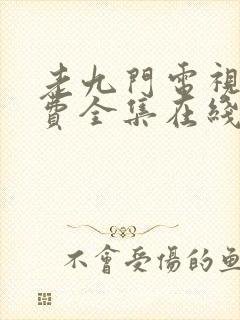 老九門電視
費全集在綫
不會受傷的魚